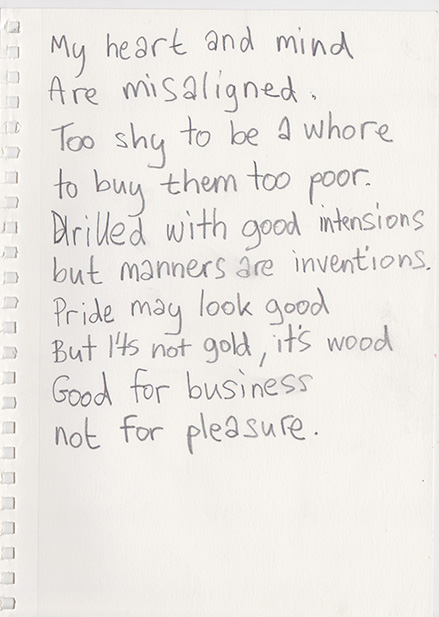 My heart and mind
Are misaligned.
Too shy to be a whore
to buy them too poor.
Drilled with good intensions
but manners are inventions.
Pride may look good
But it's not gold, it's wood
Good for business
not for pleasure.